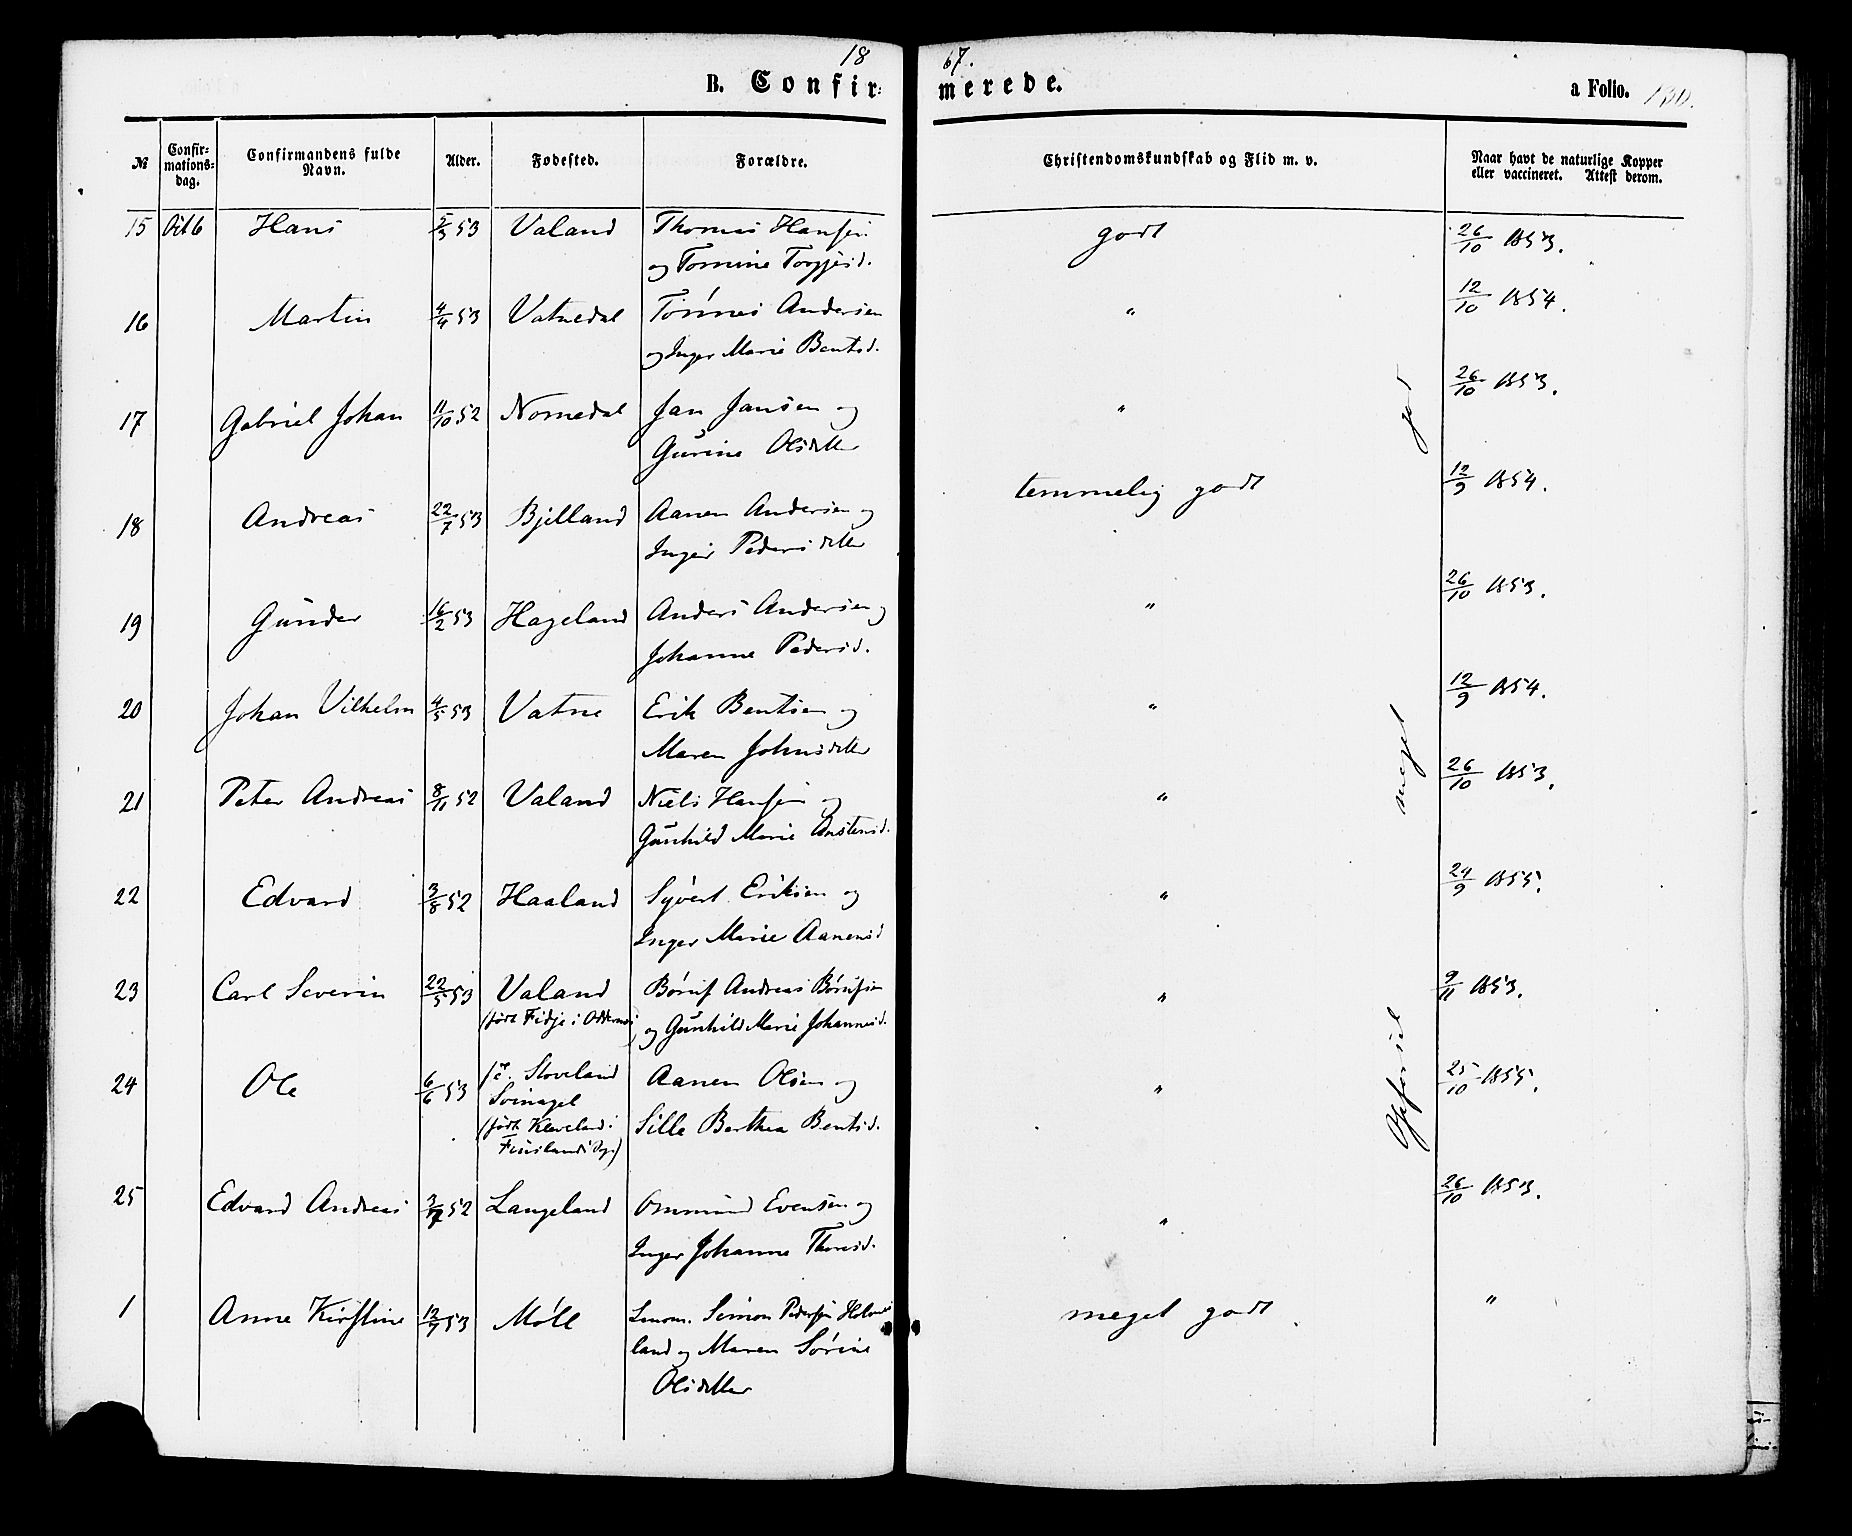 18 67.
B. Confir= merede. a Folio. 130.
№ Confir=mations=dag. Confirmandens fulde Navn. Alder. Fødested. Forældre. Christendomskundskab og Flid m. v. Naar havt de naturlige Kopper eller vaccineret. Attest derom.
15 Oct 6 Hans 5/3 53 Valand Thomas Hansen godt 26/10 1853.
og Tomine Torgjusd.
16 Martin 4/4 53 Vatnedal Tønnes Andersen " 12/10 1854.
og Inger Marie Bentsd.
17 Gabriel Johan 11/10 52 Nomedal Jan Jansen og " 26/10 1853.
Gurine Olsdatter
18 Andreas 22/7 53 Bjelland Aanen Andersen og temmelig godt 12/9 1854.
Inger Pedersdatter
19 Gunder 16/2 53 Hageland Anders Andersen og " 26/10 1853.
Johanne Pedersd.
20 Johan Vilhelm 4/5 53 Vatne Erik Bentsen og " 12/9 1854.
Maren Johnsdatter
21 Peter Andreas 8/11 52 Valand Niels Hansen og " 26/10 1853.
Gunhild Marie Anstensd.
22 Edvard 3/8 52 Haaland Syvert Eriksen og " 24/9 1855.
Inger Marie Aanensd
23 Carl Severin 22/5 53 Valand Børuf Andreas Børufsen " 9/11 1853.
(født Fidje i Oddernes) og Gunhild Marie Johannesd.
24 Ole 6/6 53 Stoveland Aanen Olsen og " 25/10 1855.
Svinagel
(født Kleveland i Sille Berthea Bentsd.
Finslands Sogn)
25 Edvard Andreas 3/7 52 Langeland Ommund Evensen og " 26/10 1853.
Inger Johanne Thoresd.
1 Anne Kirstine 12/7 53 Møll Simon Pedersen Holme meget godt "
land og Maren Sørine
Olsdatter
Opførsel meget god